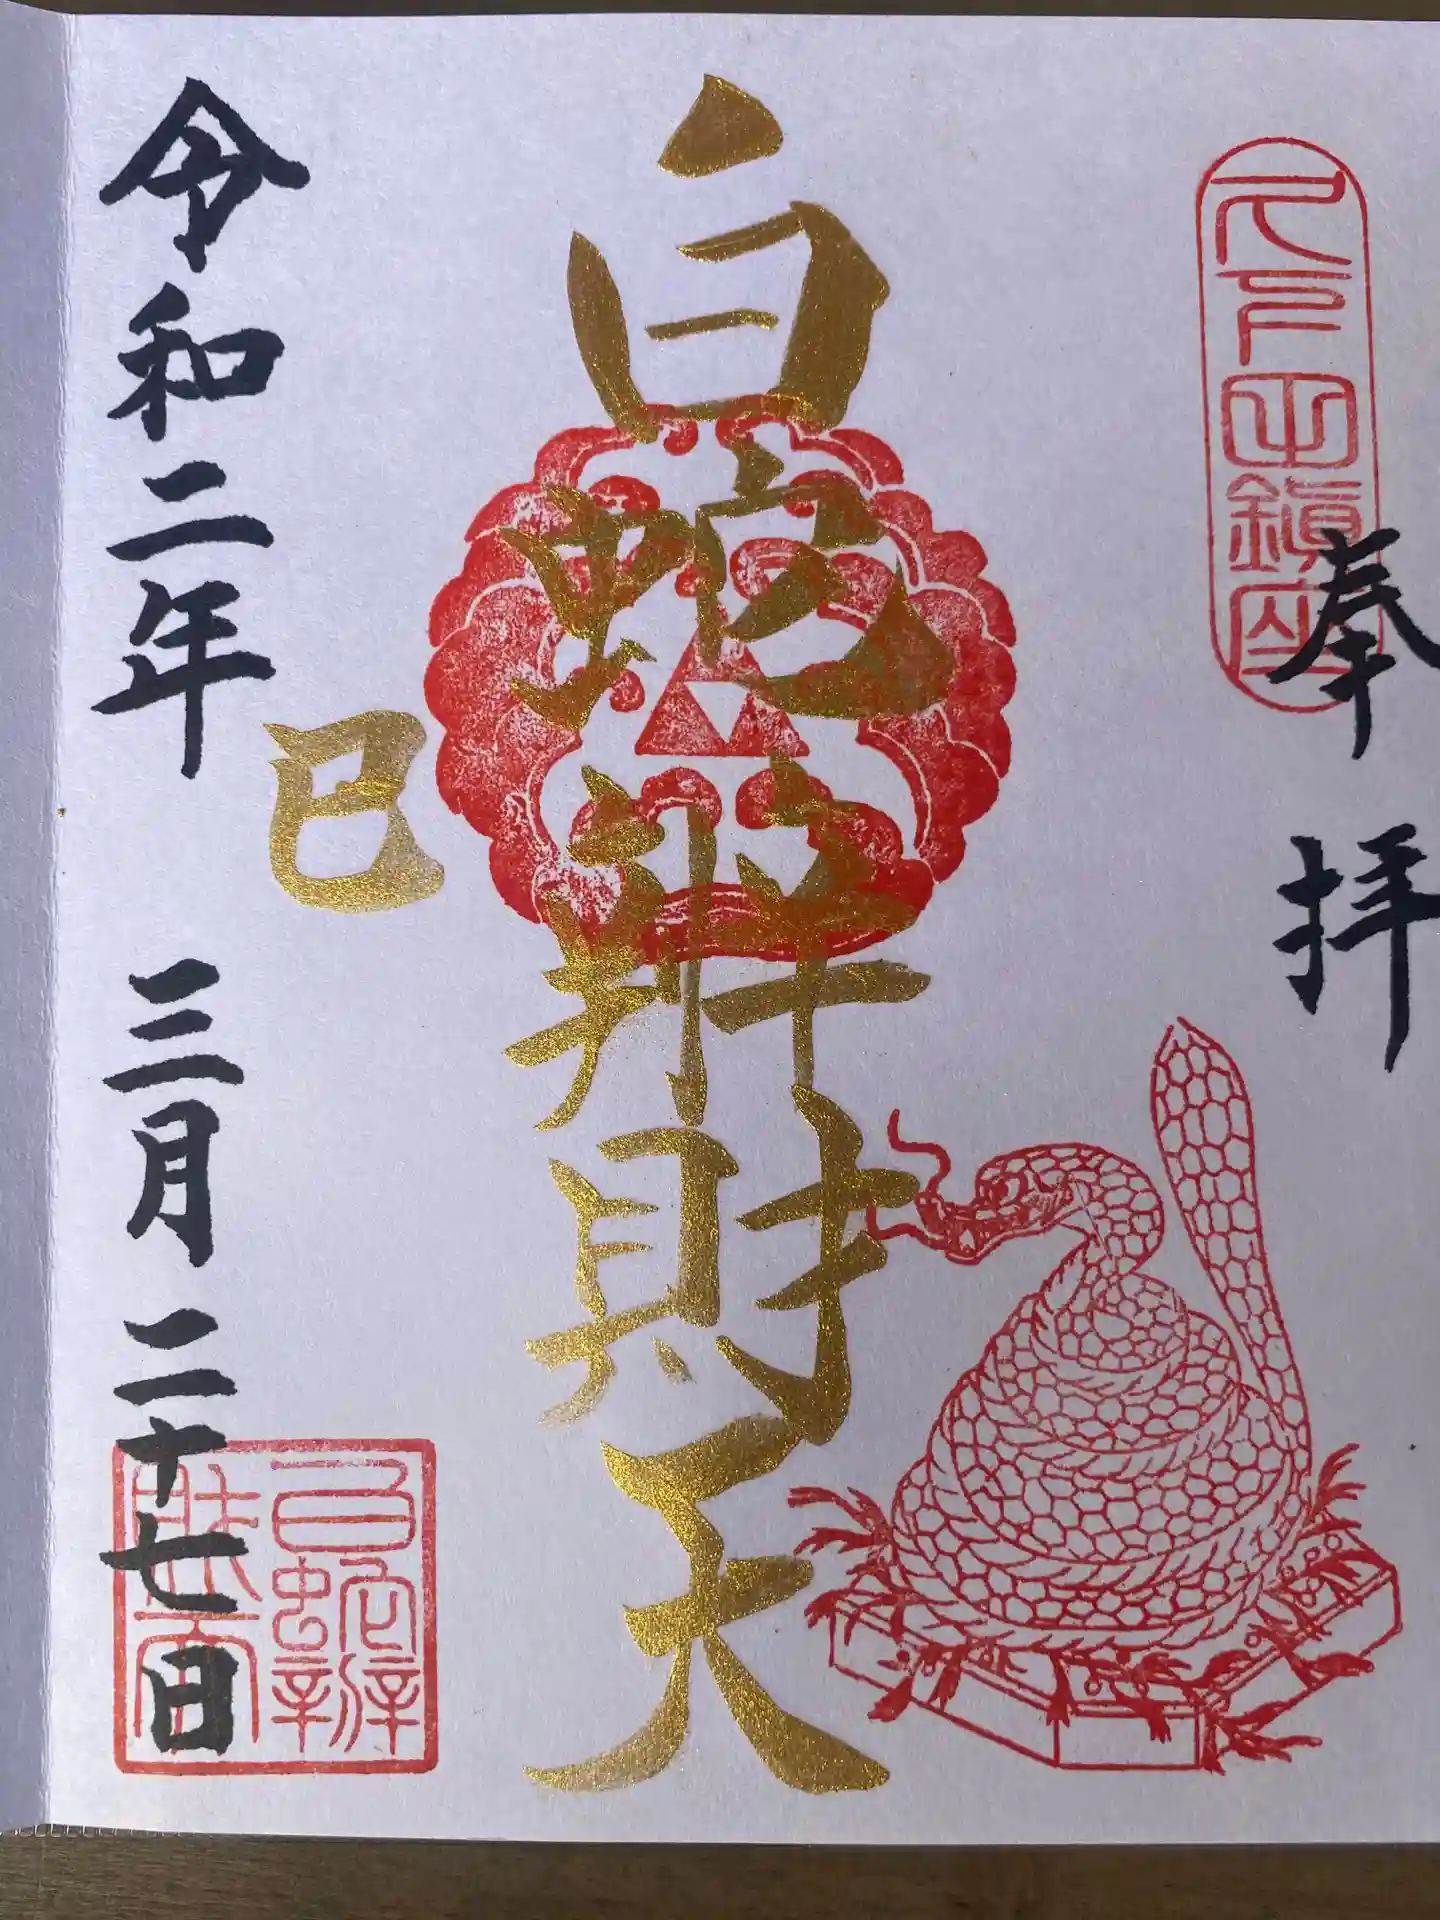 久下田鎮座
奉拝
白蛇辨財天
巳
令和二年 三月二十七日
白蛇辨
財天